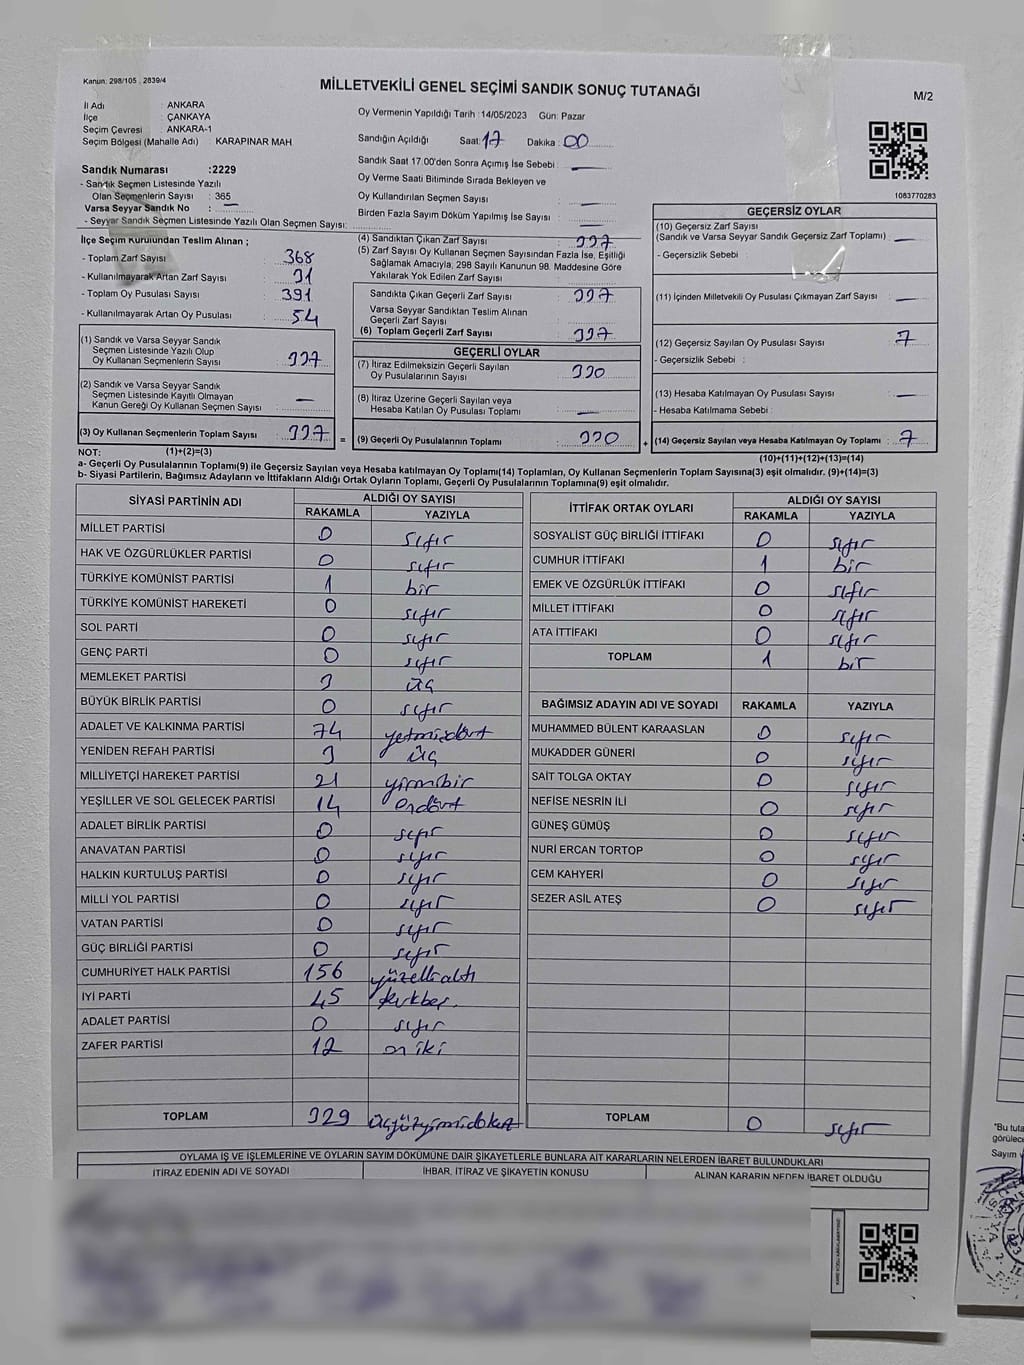 Kanun: 298/105 , 2839/4
MİLLETVEKİLİ GENEL SEÇİMİ SANDIK SONUÇ TUTANAĞI
M/2
İl Adı : ANKARA
İlçe : ÇANKAYA
Seçim Çevresi : ANKARA-1
Seçim Bölgesi (Mahalle Adı) KARAPINAR MAH
Oy Vermenin Yapıldığı Tarih :14/05/2023 Gün: Pazar
Sandığın Açıldığı Saat: 17 Dakika: 00
Sandık Saat 17.00'den Sonra Açımış İse Sebebi : —
Oy Verme Saati Bitiminde Sırada Bekleyen ve
Oy Kullandırılan Seçmen Sayısı : —
Birden Fazla Sayım Döküm Yapılmış İse Sayısı : —
1083770283
Sandık Numarası :2229
- Sandık Seçmen Listesinde Yazılı
Olan Seçmenlerin Sayısı : 365
Varsa Seyyar Sandık No : —
- Seyyar Sandık Seçmen Listesinde Yazılı Olan Seçmen Sayısı:
İlçe Seçim Kurulundan Teslim Alınan ;
- Toplam Zarf Sayısı : 368
- Kullanılmayarak Artan Zarf Sayısı : 31
- Toplam Oy Pusulası Sayısı : 391
- Kullanılmayarak Artan Oy Pusulası : 54
(1) Sandık ve Varsa Seyyar Sandık
Seçmen Listesinde Yazılı Olup
Oy Kullanan Seçmenlerin Sayısı : 337
(2) Sandık ve Varsa Seyyar Sandık
Seçmen Listesinde Kayıtlı Olmayan
Kanun Gereği Oy Kullanan Seçmen Sayısı : —
(3) Oy Kullanan Seçmenlerin Toplam Sayısı : 337 =
(4) Sandıktan Çıkan Zarf Sayısı : 337
(5) Zarf Sayısı Oy Kullanan Seçmen Sayısından Fazla İse, Eşitliği
Sağlamak Amacıyla, 298 Sayılı Kanunun 98. Maddesine Göre
Yakılarak Yok Edilen Zarf Sayısı :
Sandıkta Çıkan Geçerli Zarf Sayısı : 337
Varsa Seyyar Sandıktan Teslim Alınan
Geçerli Zarf Sayısı :
(6) Toplam Geçerli Zarf Sayısı : 337
GEÇERLİ OYLAR
(7) İtiraz Edilmeksizin Geçerli Sayılan
Oy Pusulalarının Sayısı : 330
(8) İtiraz Üzerine Geçerli Sayılan veya
Hesaba Katılan Oy Pusulası Toplamı : —
(9) Geçerli Oy Pusulalarının Toplamı : 330 +
GEÇERSİZ OYLAR
(10) Geçersiz Zarf Sayısı
(Sandık ve Varsa Seyyar Sandık Geçersiz Zarf Toplamı) : —
- Geçersizlik Sebebi :
(11) İçinden Milletvekili Oy Pusulası Çıkmayan Zarf Sayısı : —
(12) Geçersiz Sayılan Oy Pusulası Sayısı : 7
- Geçersizlik Sebebi :
(13) Hesaba Katılmayan Oy Pusulası Sayısı : —
- Hesaba Katılmama Sebebi :
(14) Geçersiz Sayılan veya Hesaba Katılmayan Oy Toplamı : 7
NOT: (1)+(2)=(3)
(10)+(11)+(12)+(13)=(14)
a- Geçerli Oy Pusulalarının Toplamı(9) ile Geçersiz Sayılan veya Hesaba katılmayan Oy Toplamı(14) Toplamları, Oy Kullanan Seçmenlerin Toplam Sayısına(3) eşit olmalıdır. (9)+(14)=(3)
b- Siyasi Partilerin, Bağımsız Adayların ve İttifakların Aldığı Ortak Oyların Toplamı, Geçerli Oy Pusulalarının Toplamına(9) eşit olmalıdır.
SİYASİ PARTİNİN ADI ALDIĞI OY SAYISI
RAKAMLA YAZIYLA
MİLLET PARTİSİ 0 sıfır
HAK VE ÖZGÜRLÜKLER PARTİSİ 0 sıfır
TÜRKİYE KOMÜNİST PARTİSİ 1 bir
TÜRKİYE KOMÜNİST HAREKETİ 0 sıfır
SOL PARTİ 0 sıfır
GENÇ PARTİ 0 sıfır
MEMLEKET PARTİSİ 3 üç
BÜYÜK BİRLİK PARTİSİ 0 sıfır
ADALET VE KALKINMA PARTİSİ 74 yetmişdört
YENİDEN REFAH PARTİSİ 3 üç
MİLLİYETÇİ HAREKET PARTİSİ 21 yirmibir
YEŞİLLER VE SOL GELECEK PARTİSİ 14 ondört
ADALET BİRLİK PARTİSİ 0 sıfır
ANAVATAN PARTİSİ 0 sıfır
HALKIN KURTULUŞ PARTİSİ 0 sıfır
MİLLİ YOL PARTİSİ 0 sıfır
VATAN PARTİSİ 0 sıfır
GÜÇ BİRLİĞİ PARTİSİ 0 sıfır
CUMHURİYET HALK PARTİSİ 156 yüzellialtı
İYİ PARTİ 45 kırkbeş.
ADALET PARTİSİ 0 sıfır
ZAFER PARTİSİ 12 oniki
TOPLAM 329 üçyüzyirmidokuz
İTTİFAK ORTAK OYLARI ALDIĞI OY SAYISI
RAKAMLA YAZIYLA
SOSYALİST GÜÇ BİRLİĞİ İTTİFAKI 0 sıfır
CUMHUR İTTİFAKI 1 bir
EMEK VE ÖZGÜRLÜK İTTİFAKI 0 sıfır
MİLLET İTTİFAKI 0 sıfır
ATA İTTİFAKI 0 sıfır
TOPLAM 1 bir
BAĞIMSIZ ADAYIN ADI VE SOYADI RAKAMLA YAZIYLA
MUHAMMED BÜLENT KARAASLAN 0 sıfır
MUKADDER GÜNERİ 0 sıfır
SAİT TOLGA OKTAY 0 sıfır
NEFİSE NESRİN İLİ 0 sıfır
GÜNEŞ GÜMÜŞ 0 sıfır
NURİ ERCAN TORTOP 0 sıfır
CEM KAHYERİ 0 sıfır
SEZER ASİL ATEŞ 0 sıfır
TOPLAM 0 sıfır
OYLAMA İŞ VE İŞLEMLERİNE VE OYLARIN SAYIM DÖKÜMÜNE DAİR ŞİKAYETLERLE BUNLARA AİT KARARLARIN NELERDEN İBARET BULUNDUKLARI
İTİRAZ EDENİN ADI VE SOYADI İHBAR, İTİRAZ VE ŞİKAYETİN KONUSU ALINAN KARARIN NEDEN İBARET OLDUĞU
"Bu tuta
görülece
Sayım v